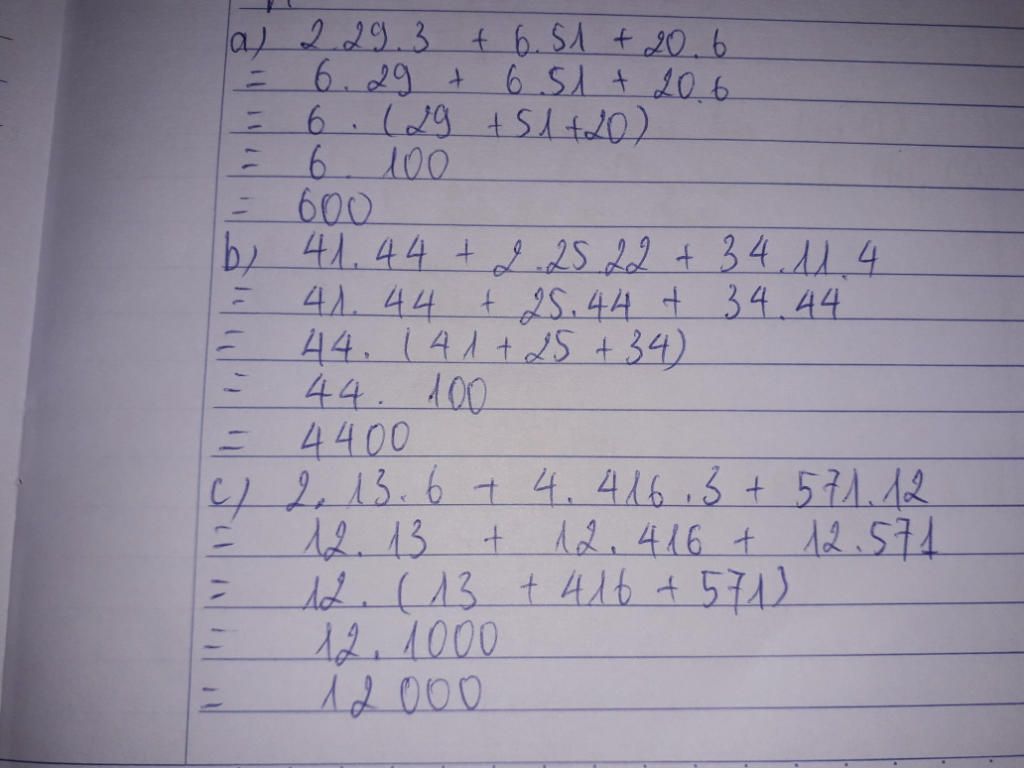 a) 2.29.3 + 6.51 + 20.6
= 6.29 + 6.51 + 20.6
= 6.(29 + 51 + 20)
= 6.100
= 600
b) 41.44 + 2.25.22 + 34.11.4
= 41.44 + 25.44 + 34.44
= 44.(41 + 25 + 34)
= 44.100
= 4400
c) 2.13.6 + 4.416.3 + 571.12
= 12.13 + 12.416 + 12.571
= 12.(13 + 416 + 571)
= 12.1000
= 12000